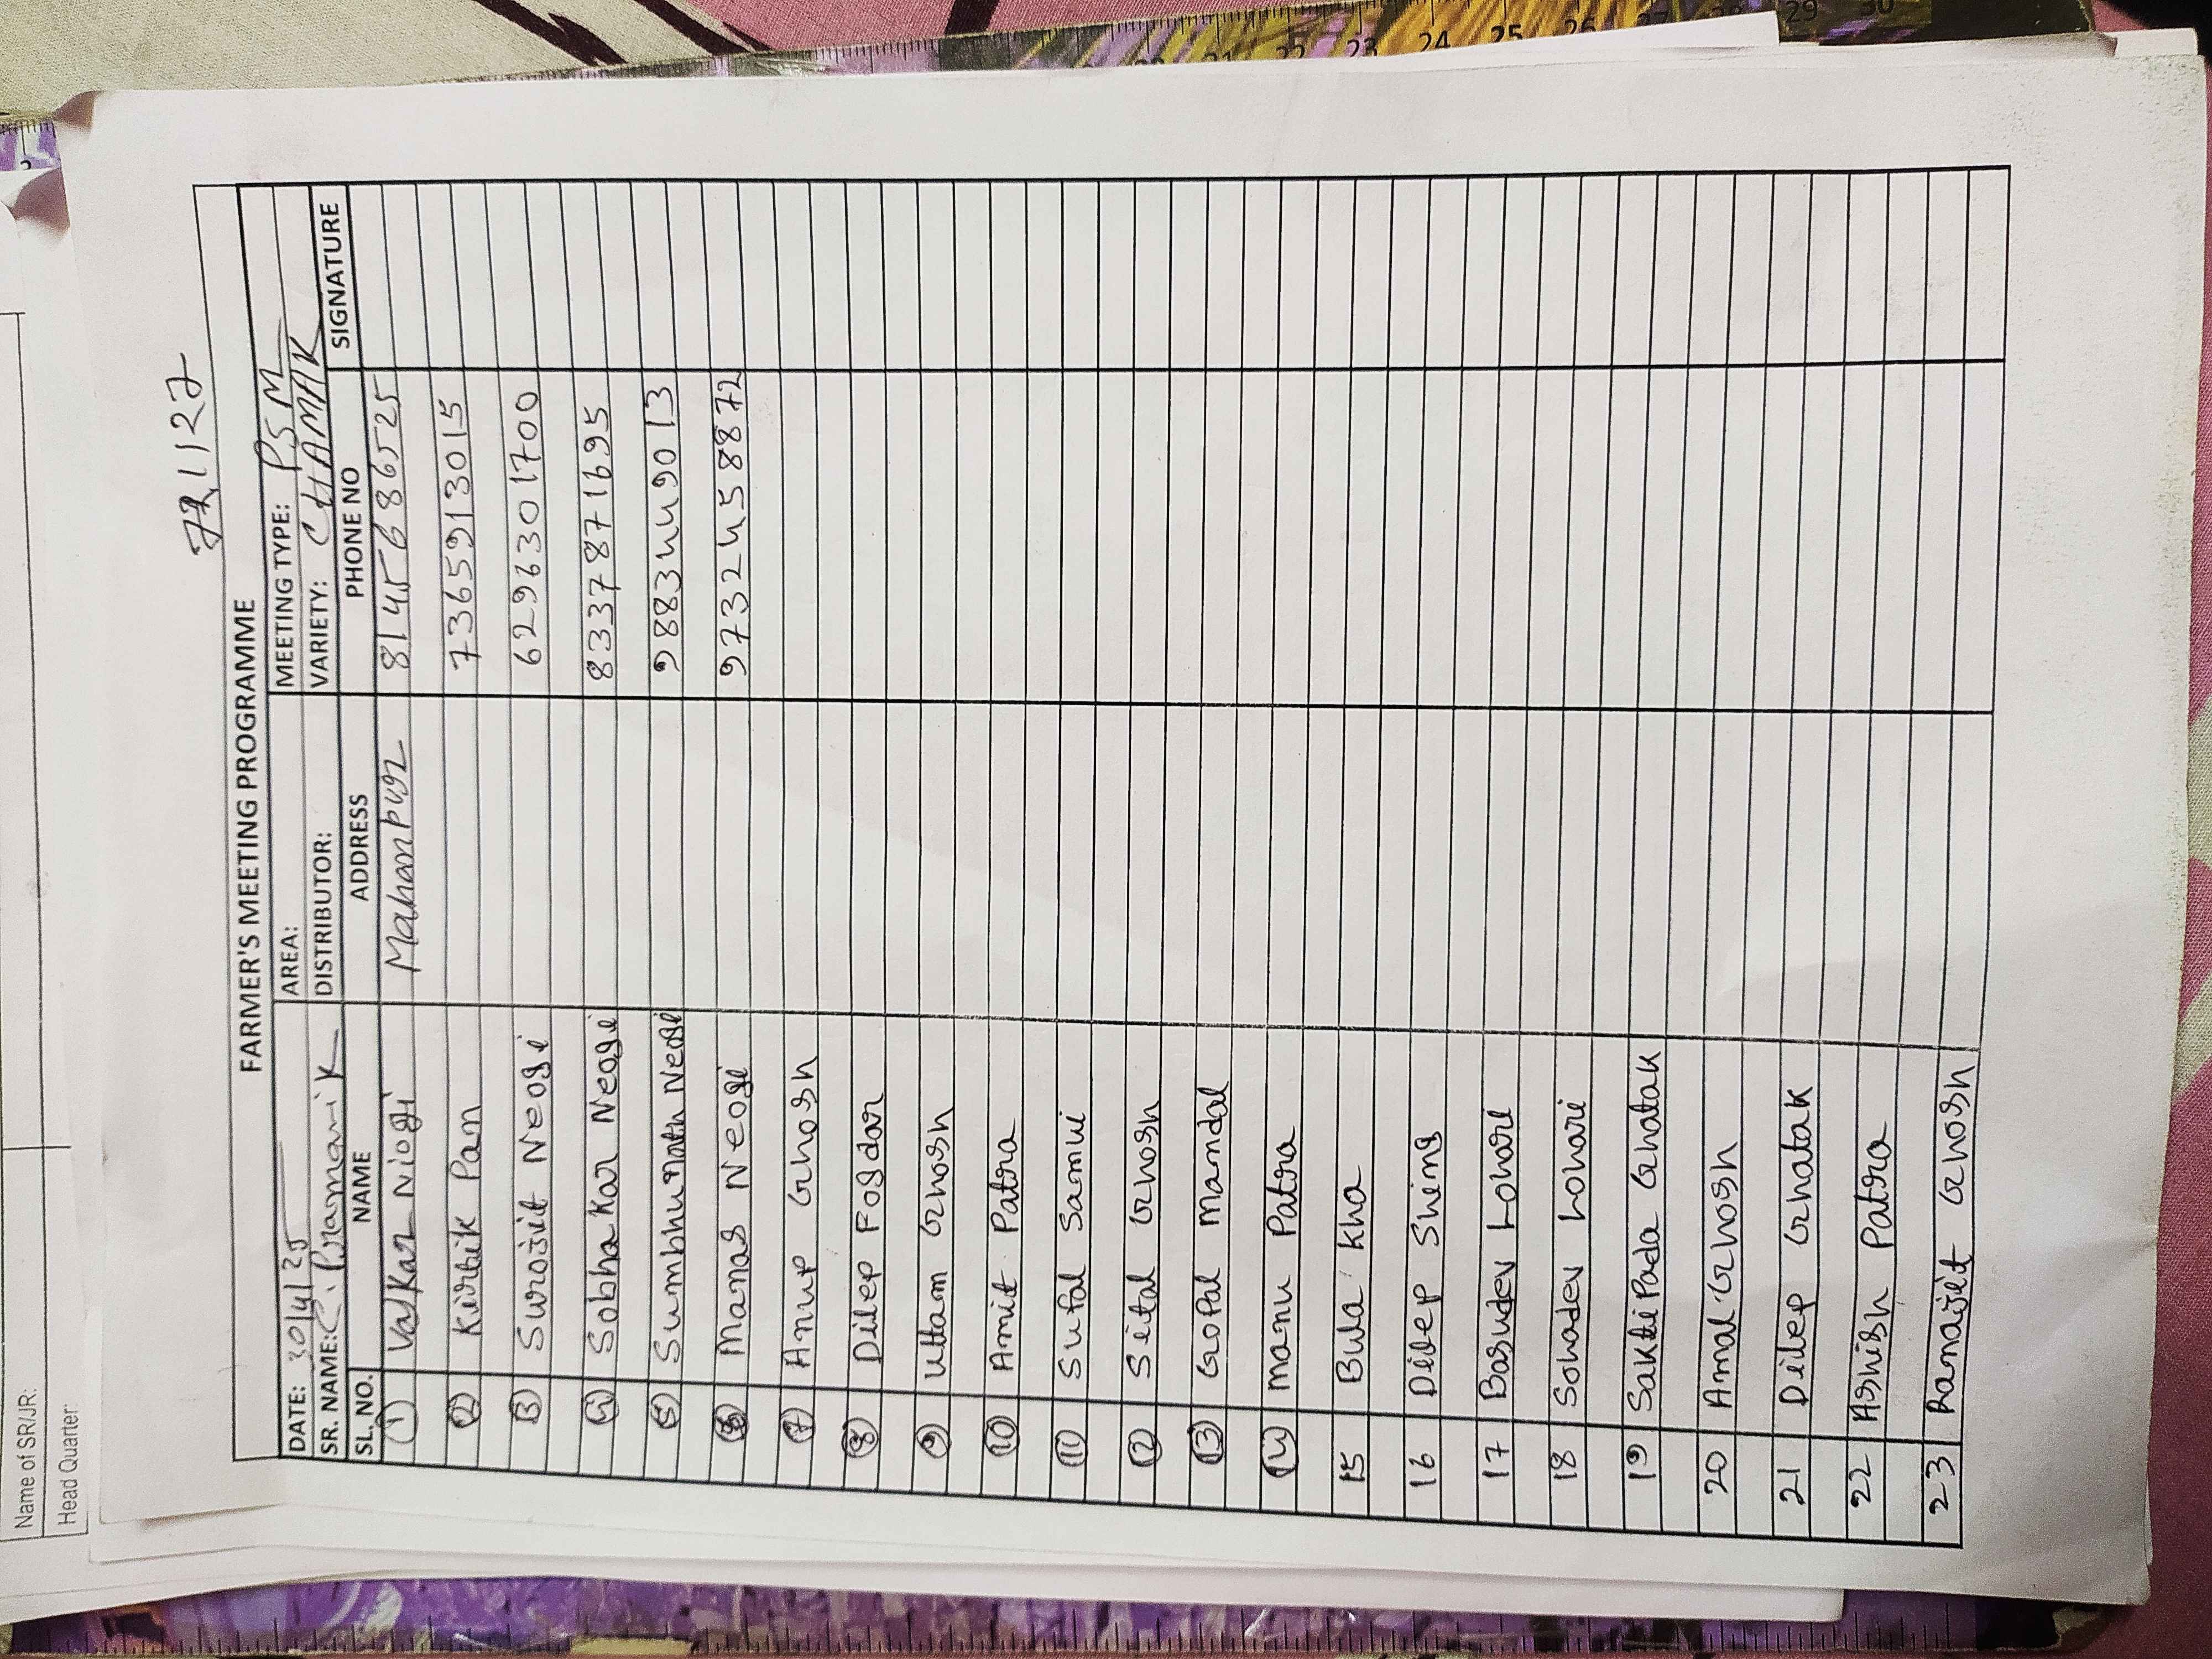 Name of SR/JR:
Head Quarter:
FARMER'S MEETING PROGRAMME
DATE: 30/4/25 AREA: MEETING TYPE: PSM
SR. NAME: C. Pramanik DISTRIBUTOR: VARIETY: CHAMAK
SL. NO. NAME ADDRESS PHONE NO SIGNATURE
1 Vaskar Niogi Mahanpur 8145686525
2 Kirtik Pan 7365913015
3 Surojit Neogi 6296301700
4 Sobhakar Neogi 8337871695
5 Sumbhunath Neogi 9883449013
6 Manas Neogi 9732458872
7 Anup Ghosh
8 Dilep Fogdar
9 Uttam Ghosh
10 Amit Patra
11 Sufal Samui
12 Sital Ghosh
13 Gopal Mandal
14 Manu Patra
15 Bula Kha
16 Dilep Shing
17 Basudev Lohari
18 Sohadev Lohari
19 Saktipada Ghatak
20 Amal Ghosh
21 Dilep Ghatak
22 Ashish Patra
23 Ranajit Ghosh
21 22 23 24 25 26 27 28 29 30